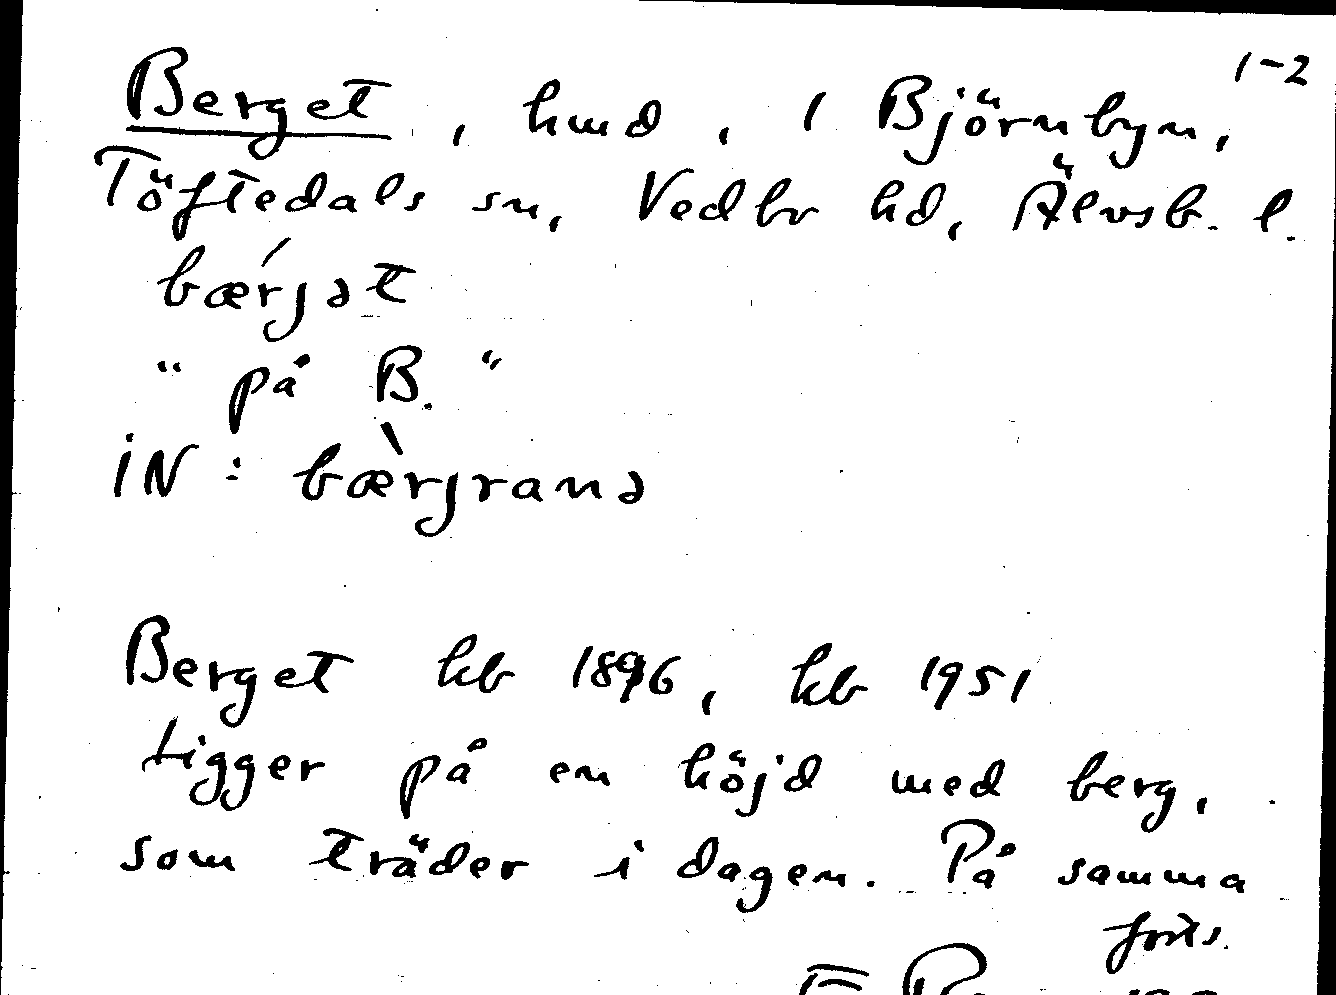 1-2
Berget, hmd, i Björnbyn,
Töftedals sn, Vedbo hd, Älvsb. l.
bǽrjət
"på B."
iN: bæ̀rjranə
Berget kb 1896, kb 1951
Ligger på en höjd med berg,
som träder i dagen. På samma
forts.